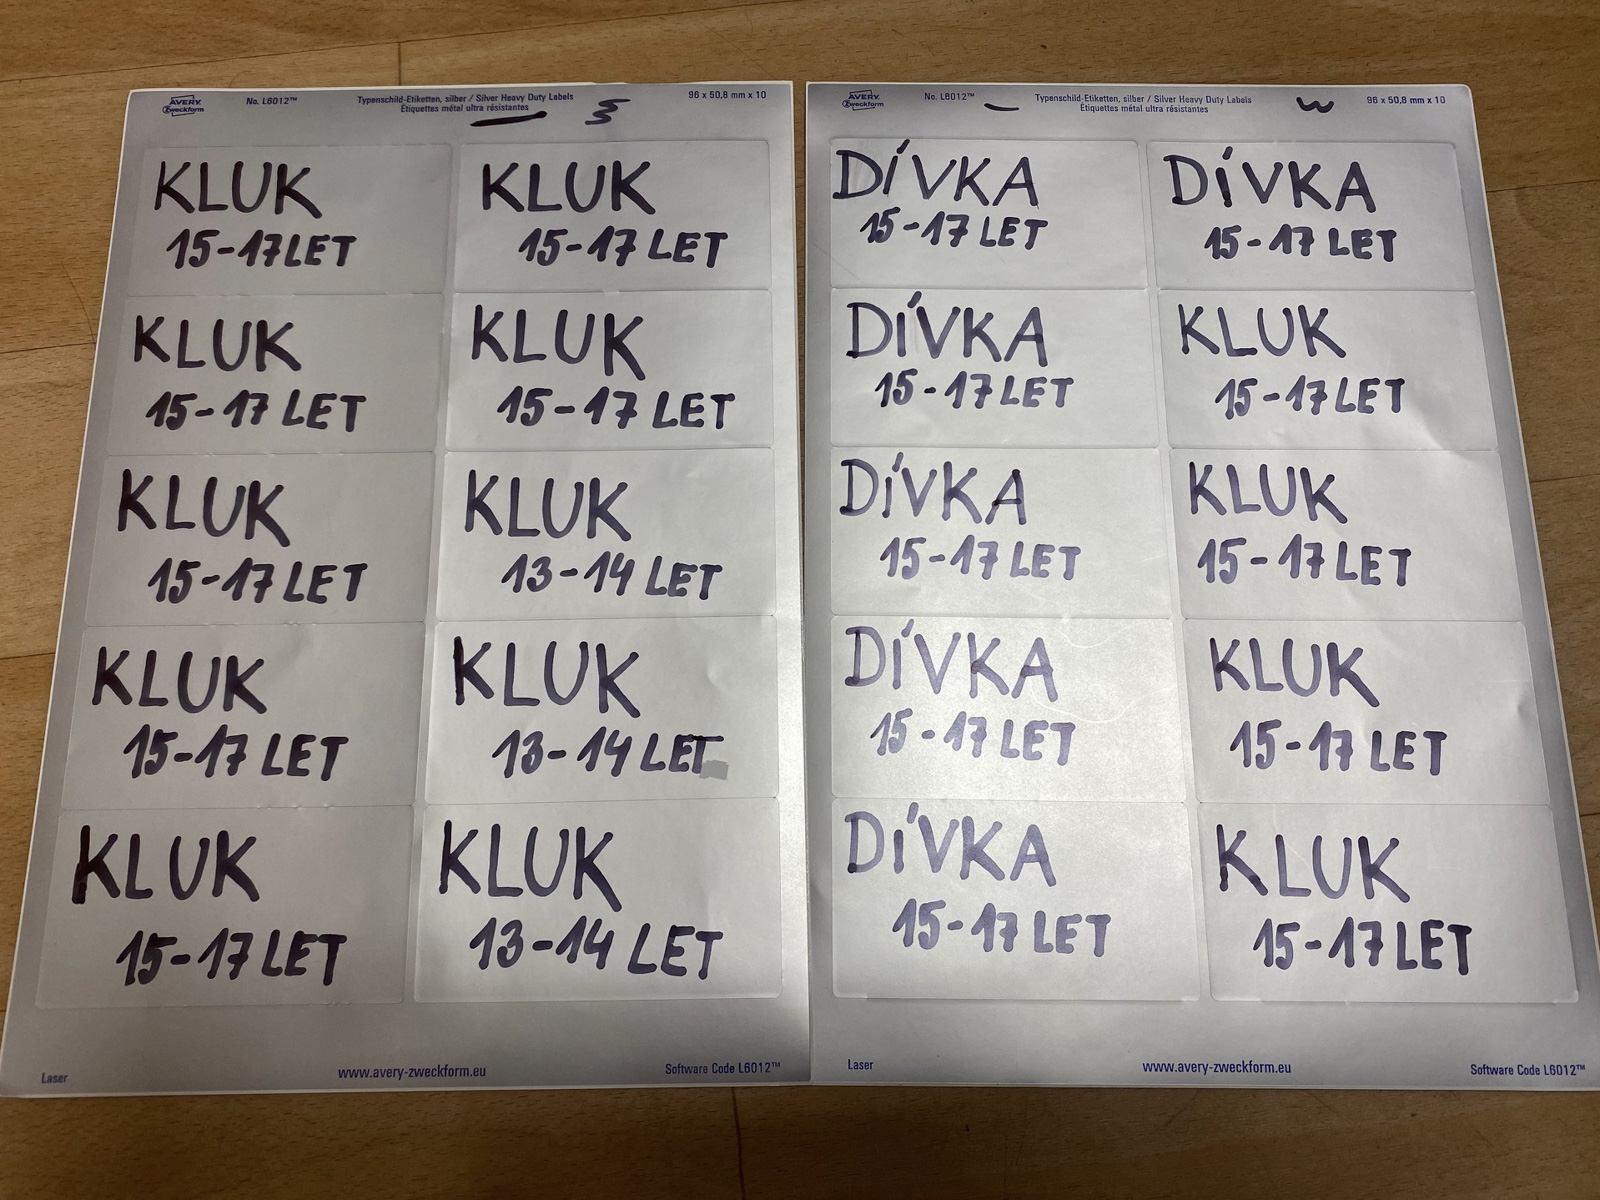 AVERY
Zweckform
No. L6012™
Typenschild-Etiketten, silber / Silver Heavy Duty Labels
Étiquettes métal ultra résistantes
96 x 50,8 mm x 10
KLUK
15-17 LET
KLUK
15-17 LET
KLUK
15-17 LET
KLUK
15-17 LET
KLUK
15-17 LET
KLUK
13-14 LET
KLUK
15-17 LET
KLUK
13-14 LET
KLUK
15-17 LET
KLUK
13-14 LET
Laser
www.avery-zweckform.eu
Software Code L6012™
AVERY
Zweckform
No. L6012™
Typenschild-Etiketten, silber / Silver Heavy Duty Labels
Étiquettes métal ultra résistantes
96 x 50,8 mm x 10
DÍVKA
15-17 LET
DÍVKA
15-17 LET
DÍVKA
15-17 LET
KLUK
15-17 LET
DÍVKA
15-17 LET
KLUK
15-17 LET
DÍVKA
15-17 LET
KLUK
15-17 LET
DÍVKA
15-17 LET
KLUK
15-17 LET
Laser
www.avery-zweckform.eu
Software Code L6012™